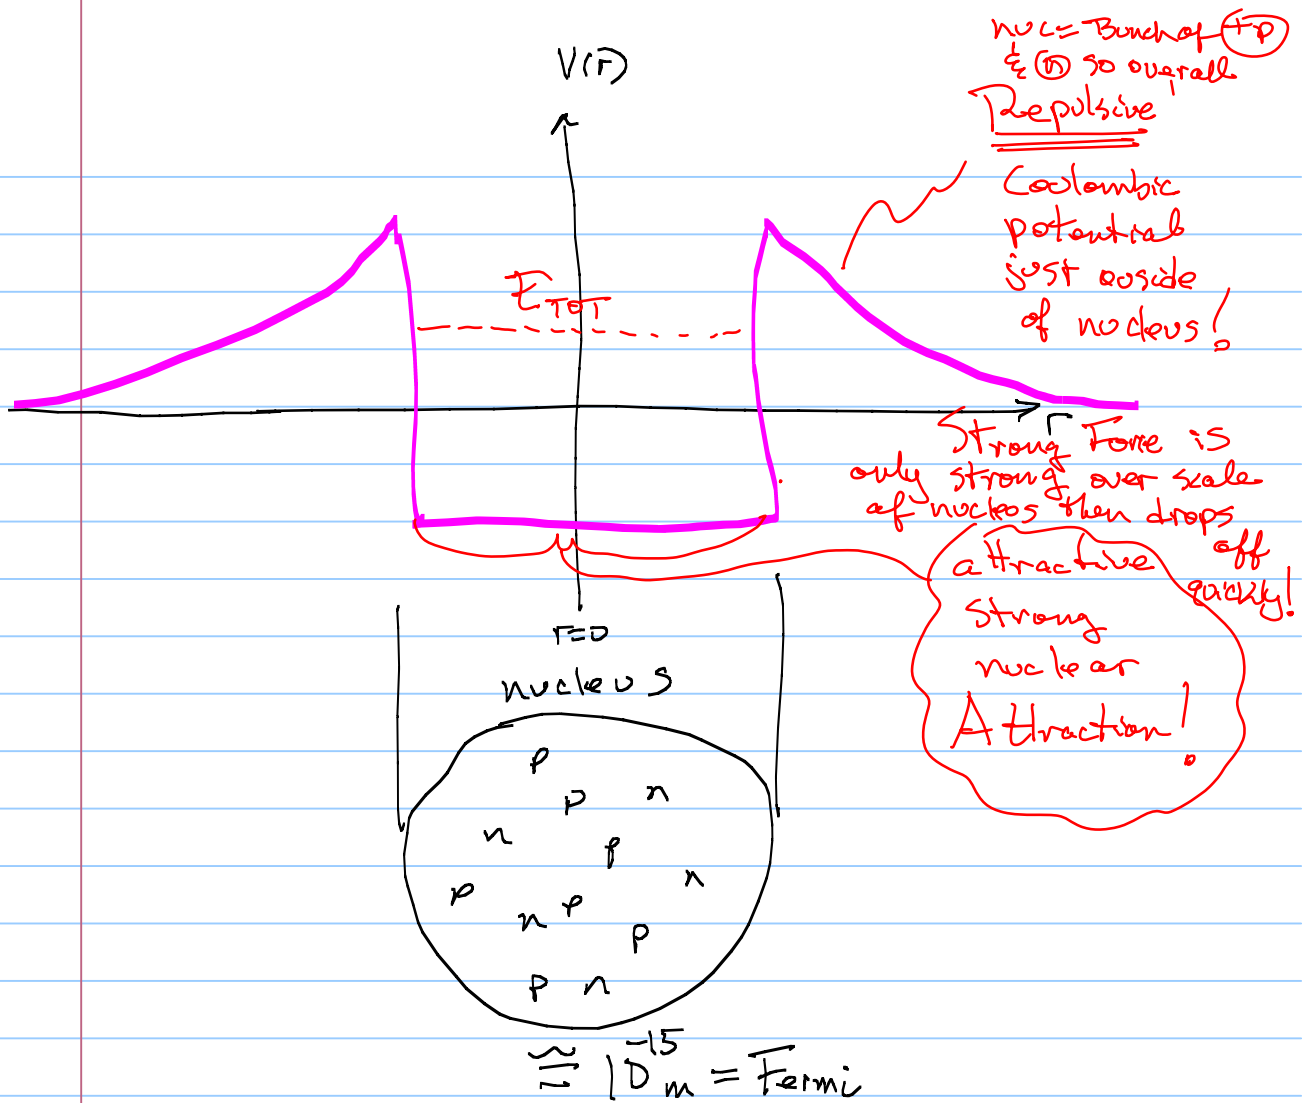 V(r)
nuc = Bunch of +p
& n so overall
Repulsive
Coulombic
potential
just ouside
of nucleus!
E_TOT
r
Strong Force is
only strong over scale
of nucleus then drops
off
quickly!
attractive
strong
nuclear
Attraction!
r=0
nucleus
p
p n
n p
p n
n p
p
p n
≅ 10^-15 m = Fermi